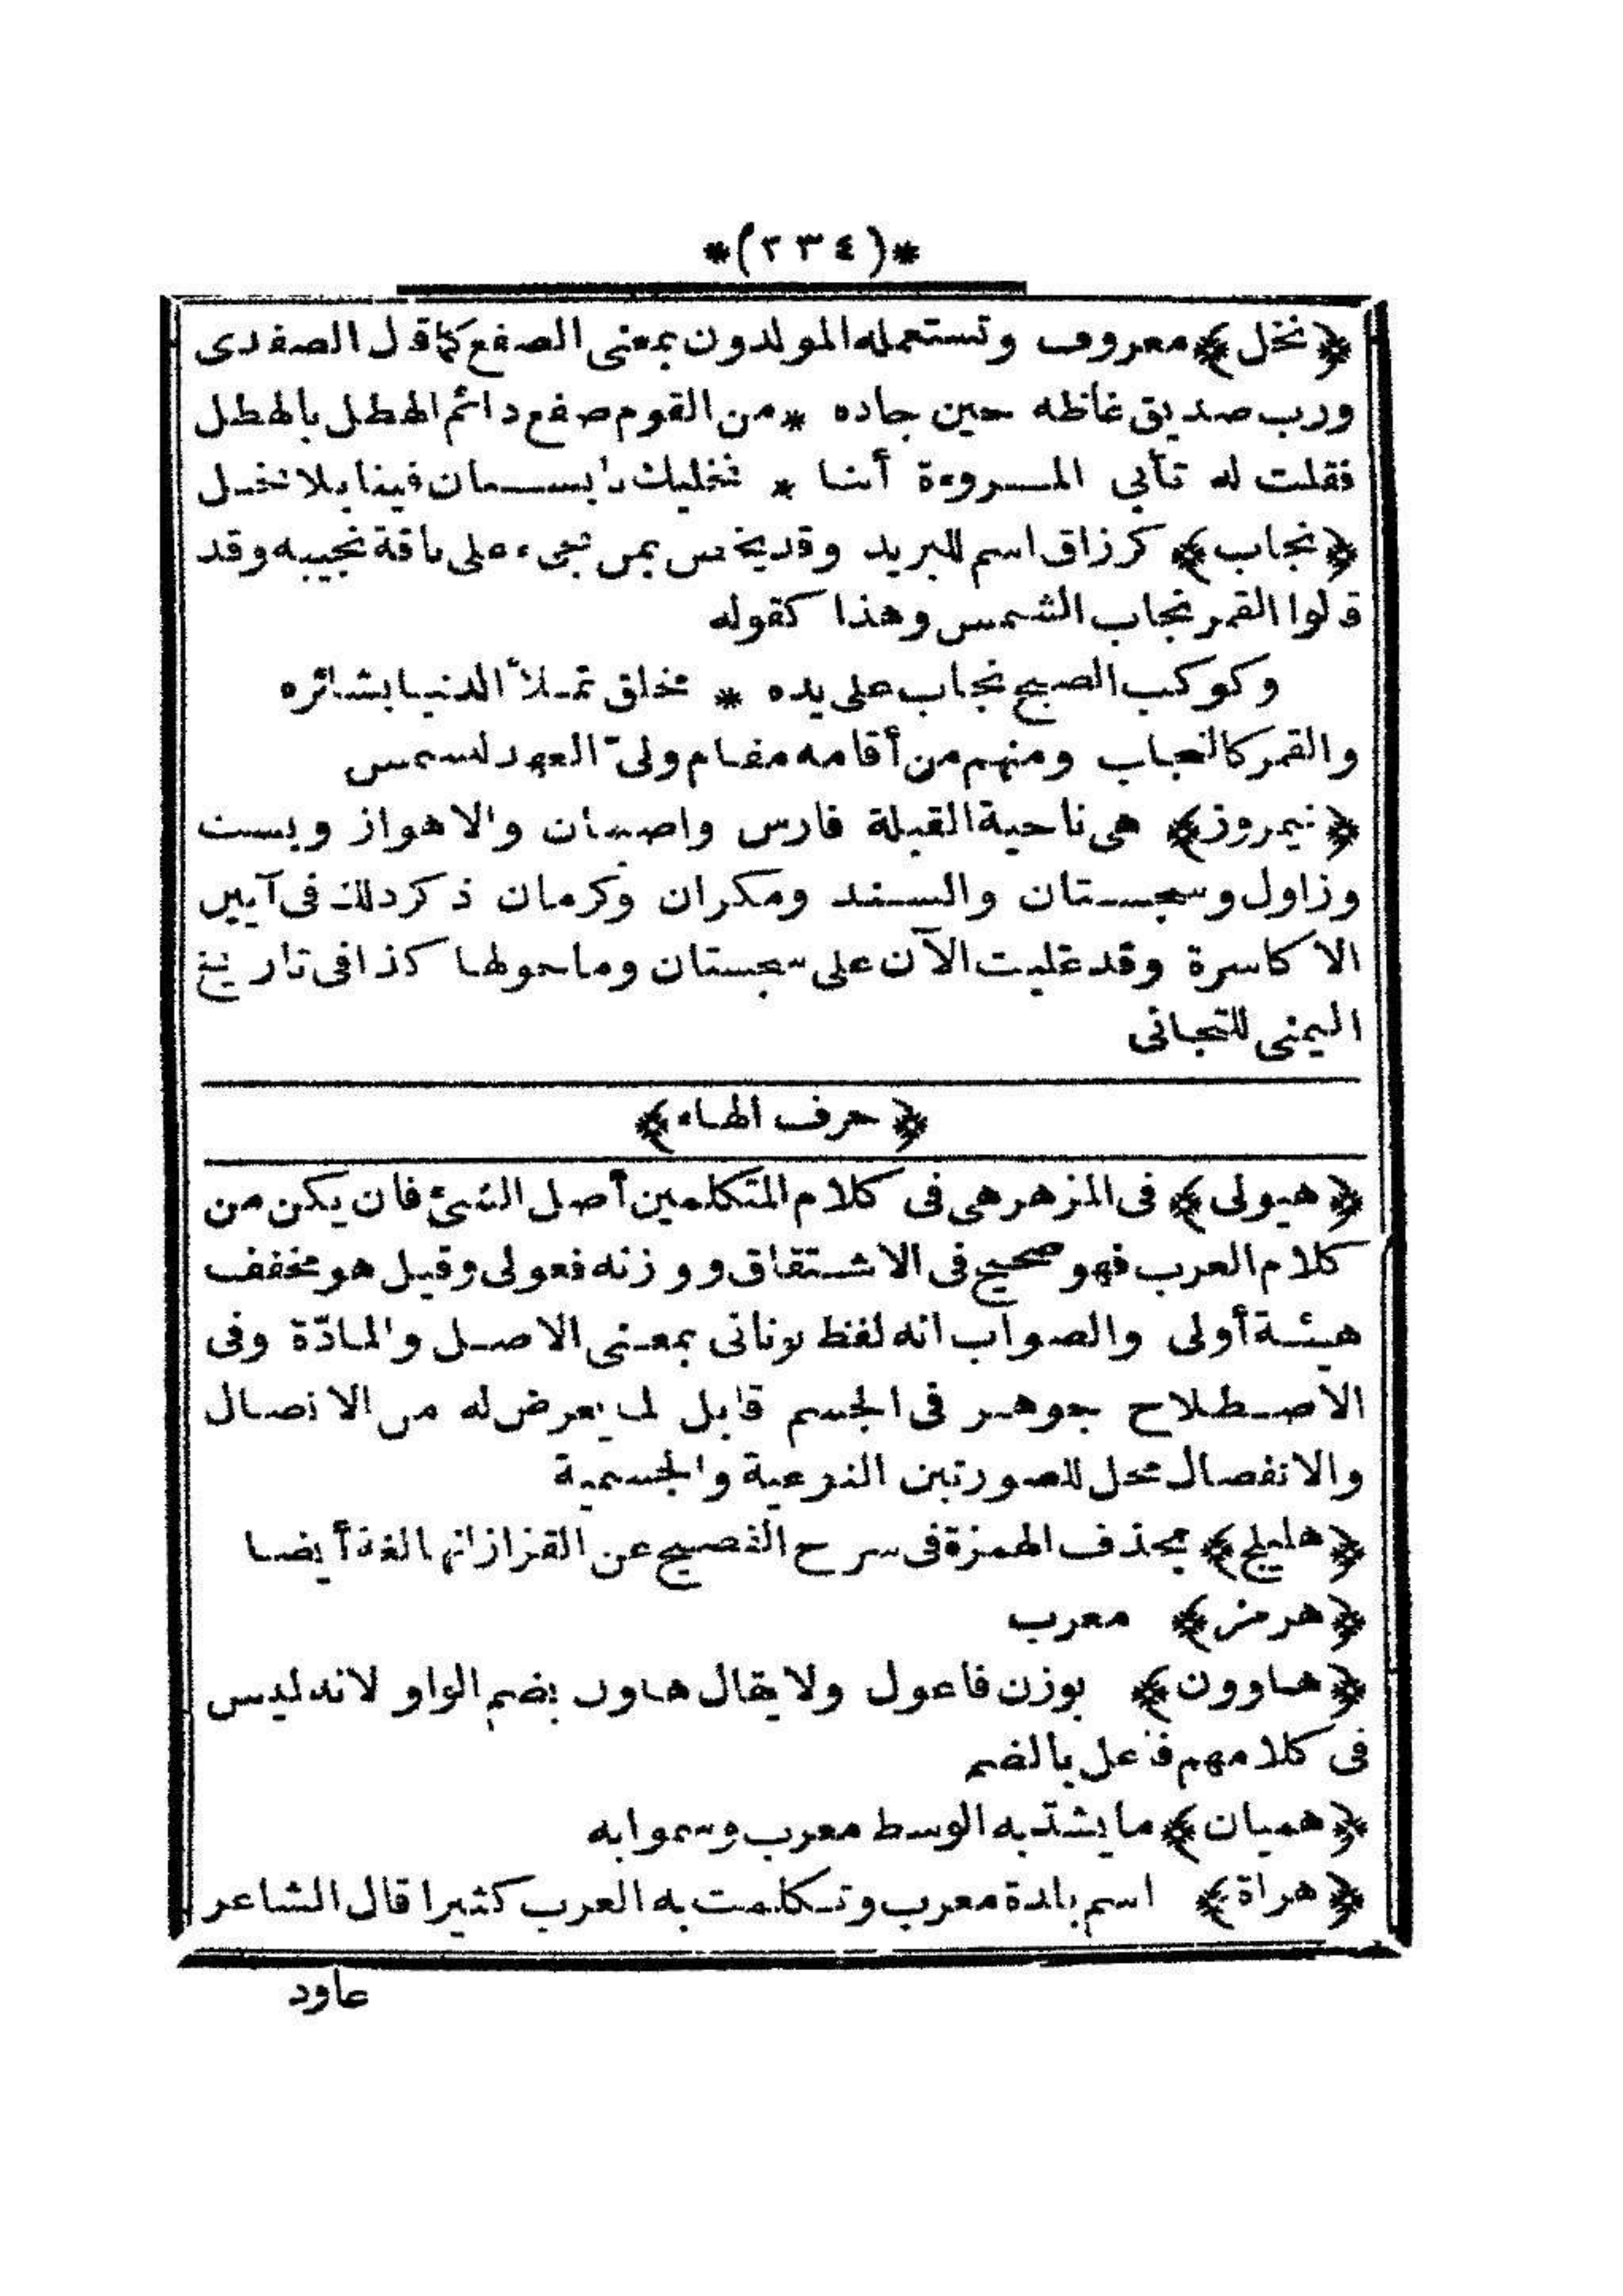 *(٢٣٤)*
﴿نخل﴾ معروف وتستعمله المولدون بمعنى الصفع كما قال الصفدى
ورب صديق غاظه حين جاده * من القوم صفع دائم الهطل بالهطل
فقلت له تأبى المروءة أننا * نخليك يا بستان فينا بلا نخل
﴿نجاب﴾ كرزاق اسم للبريد وقد يخص بمن يجىء على ناقة نجيبه وقد
قالوا القمر نجاب الشمس وهذا كقوله
وكوكب الصبح نجاب على يده * مخلق تملأ الدنيا بشائره
والقمر كالنجاب ومنهم من أقامه مقام ولىّ العهد للشمس
﴿نيمروز﴾ هى ناحية القبلة فارس واصبهان والاهواز وبست
وزاول وسجستان والسند ومكران وكرمان ذكر ذلك فى آيين
الاكاسرة وقد غلبت الآن على سجستان وما حولها كذا فى تاريخ
اليمنى للنجاتى
﴿حرف الهاء﴾
﴿هيولى﴾ فى المزهر هى فى كلام المتكلمين أصل الشئ فان يكن من
كلام العرب فهو صحيح فى الاشتقاق ووزنه فعولى وقيل هو مخفف
هيئة أولى والصواب انه لفظ يونانى بمعنى الاصل والمادّة وفى
الاصطلاح جوهر فى الجسم قابل لما يعرض له من الاتصال
والانفصال محل للصورتين النوعية والجسمية
﴿هليلج﴾ بحذف الهمزة فى شرح الفصيح عن القزاز انها لغة أيضا
﴿هرمز﴾ معرب
﴿هاوون﴾ بوزن فاعول ولا يقال هاون بضم الواو لانه ليس
فى كلامهم فاعل بالضم
﴿هميان﴾ ما يشدّ به الوسط معرب وسموا به
﴿هراة﴾ اسم بلدة معرب وتكلمت به العرب كثيرا قال الشاعر
عاود